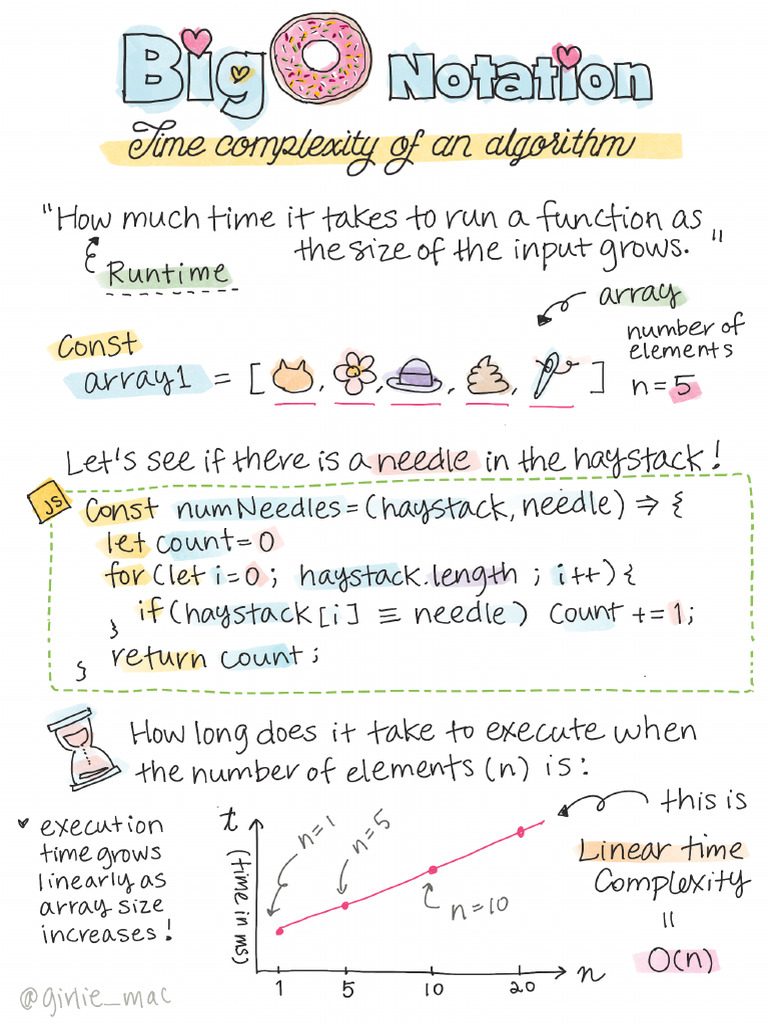 Big O Notation
Time complexity of an algorithm
"How much time it takes to run a function as
the size of the input grows."
Runtime
array
number of
elements
n=5
Const
array1 = [ , , , , ]
Let's see if there is a needle in the haystack!
JS
Const numNeedles=(haystack, needle) ⇒ {
let count=0
for(let i=0; haystack.length ; i++){
if(haystack[i] ≡ needle) Count += 1;
}
return count;
}
How long does it take to execute when
the number of elements (n) is:
execution
time grows
linearly as
array size
increases!
t
(time in ms)
n=1
n=5
n=10
1 5 10 20
n
this is
Linear time
Complexity
=
O(n)
@girlie_mac